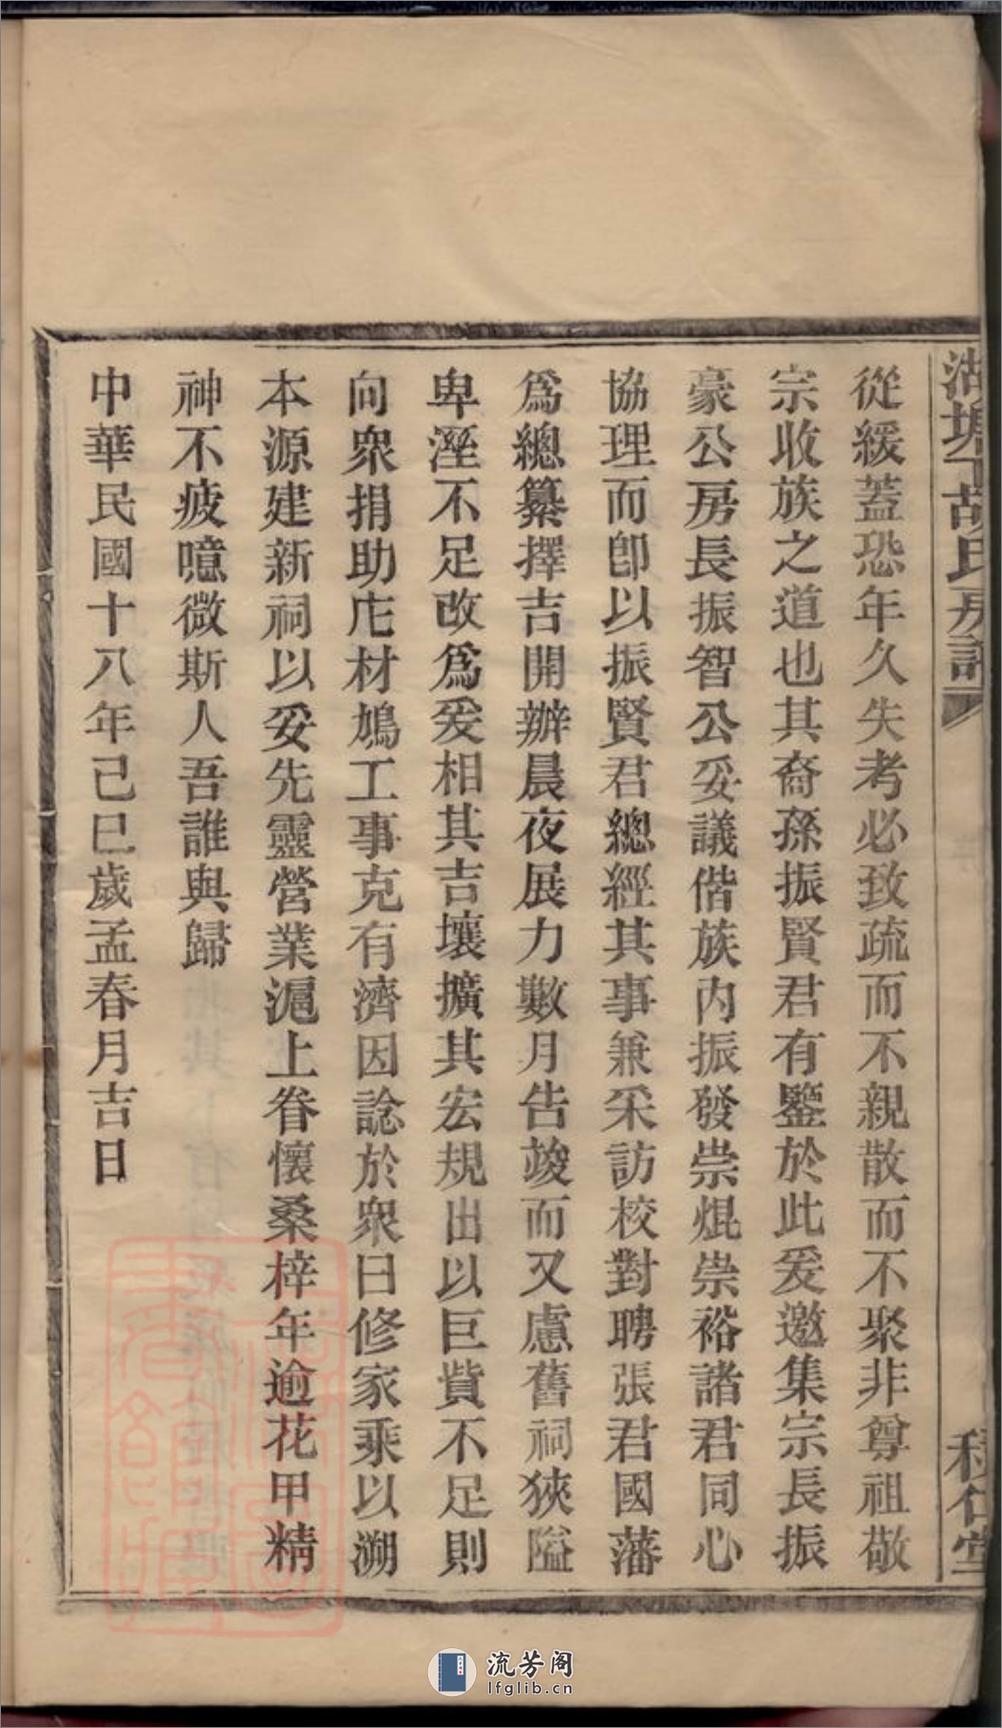 湖塘下胡氏房譜
積仁堂
從緩蓋恐年久失考必致疏而不親散而不聚非尊祖敬
宗收族之道也其裔孫振賢君有鑒於此爰邀集宗長振
豪公房長振智公妥議偕族內振發崇焜崇裕諸君同心
協理而卽以振賢君總經其事兼采訪校對聘張君國藩
爲總纂擇吉開辦晨夜展力數月告竣而又慮舊祠狹隘
卑溼不足改爲爰相其吉壤擴其宏規出以巨貲不足則
向衆捐助庀材鳩工事克有濟因諗於衆曰修家乘以溯
本源建新祠以妥先靈營業滬上眷懷桑梓年逾花甲精
神不疲噫微斯人吾誰與歸
中華民國十八年己巳歲孟春月吉日
流芳阁
lfglib.cn